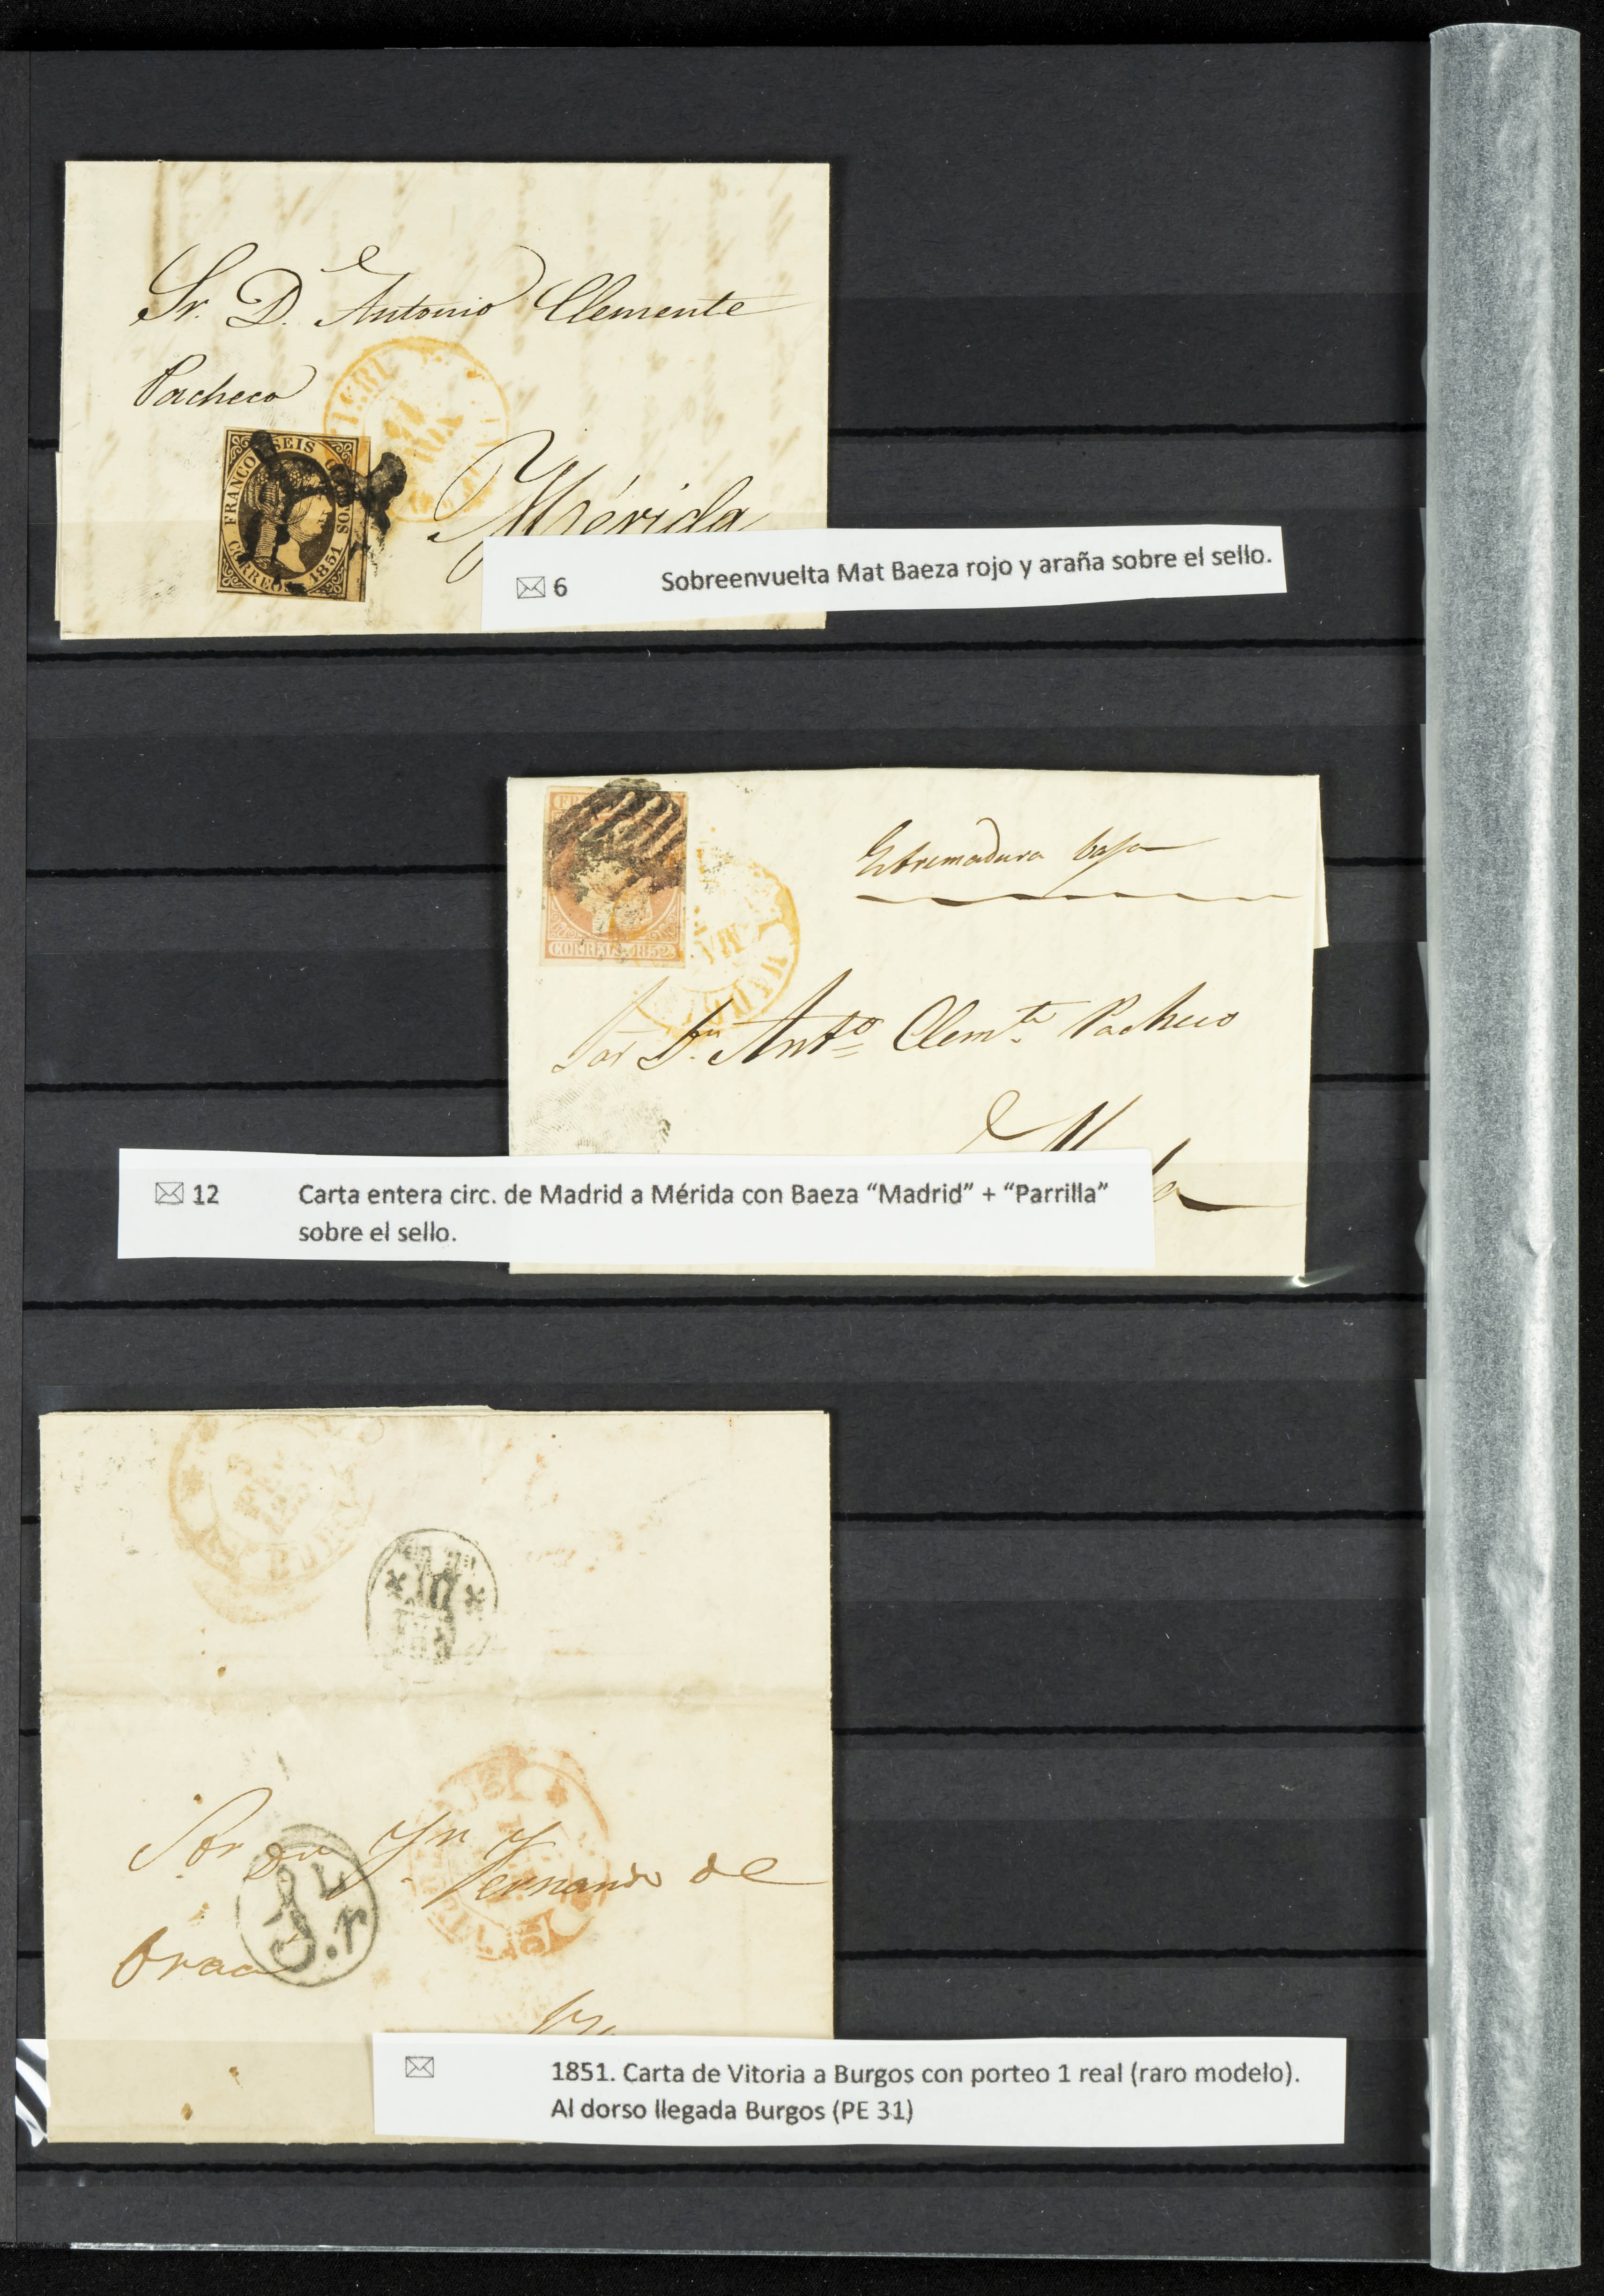 Sr. D. Antonio Clemente
Pacheco
FRANCO SEIS CUARTOS
CORREOS 1851
Mérida
6 Sobreenvuelta Mat Baeza rojo y araña sobre el sello.
CORREOS 1852
Estremadura baja
Sor Dn. Anto Clemte Pacheco
12 Carta entera circ. de Madrid a Mérida con Baeza “Madrid” + “Parrilla”
sobre el sello.
Sor Dn
Fernando de
1851. Carta de Vitoria a Burgos con porteo 1 real (raro modelo).
Al dorso llegada Burgos (PE 31)